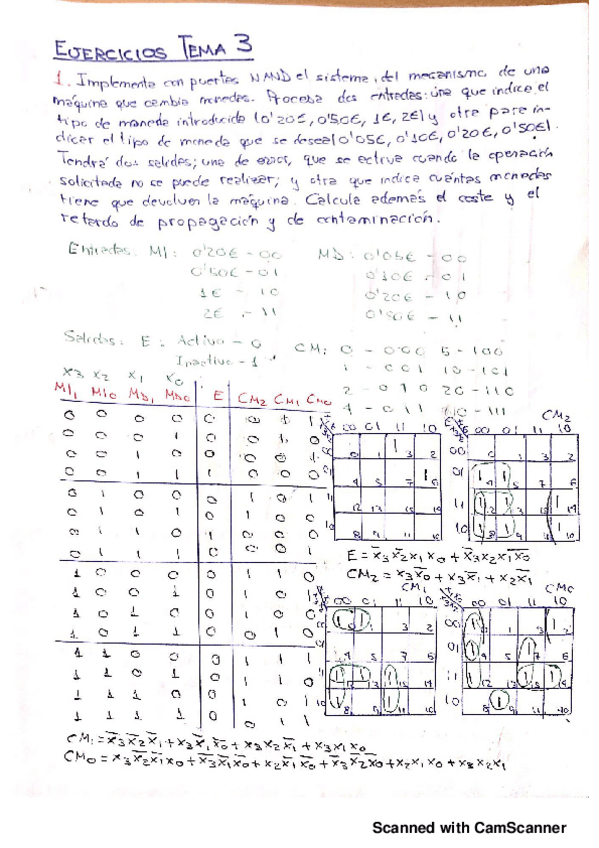 EJERCICIOS TEMA 3
1. Implementa con puertas NAND el sistema, del mecanismo de una
máquina que cambia monedas. Procesa dos entradas: una que indica el
tipo de moneda introducida (0'20€, 0'50€, 1€, 2€) y otra para in-
dicar el tipo de moneda que se desea (0'05€, 0'10€, 0'20€, 0'50€).
Tendrá dos salidas; una de error, que se activa cuando la operación
solicitada no se puede realizar; y otra que indica cuántas monedas
tiene que devolver la máquina. Calcula además el coste y el
retardo de propagación y de contaminación.
Entradas: MI: 0'20€ - 00 MD: 0'05€ - 00
0'50€ - 01 0'10€ - 01
1€ - 10 0'20€ - 10
2€ - 11 0'50€ - 11
Salidas: E: Activo - 0 CM: 0 - 000 5 - 100
Inactivo - 1 1 - 001 10 - 101
2 - 010 20 - 110
4 - 011 40 - 111
X3 X2 X1 X0
MI1 MI0 MD1 MD0 E CM2 CM1 CM0
0 0 0 0 0
0 0 0 1 0
0 0 1 0 0
0 0 1 1 1 0 0 0
0 1 0 0 0 1 0 1
0 1 0 1 0 1 0 0
0 1 1 0
0 1 1 1
1 0 0 0 0 1 1 0
1 0 0 1 0 1 0 1
1 0 1 0
1 0 1 1 0 0 1 0
1 1 0 0 0 1 1 1
1 1 0 1 0 1 1 0
1 1 1 0 0
1 1 1 1 0 0 1 1
CM2
00 01 11 10
E = x̄3x̄2x1x0 + x̄3x2x1x̄0
CM2 = x3x̄0 + x3x̄1 + x2x̄1
CM1
CM0
00 01 11 10
CM1 = x̄3x̄2x̄1 + x3x̄1x̄0 + x3x2x̄1 + x3x1x0
Scanned with CamScanner